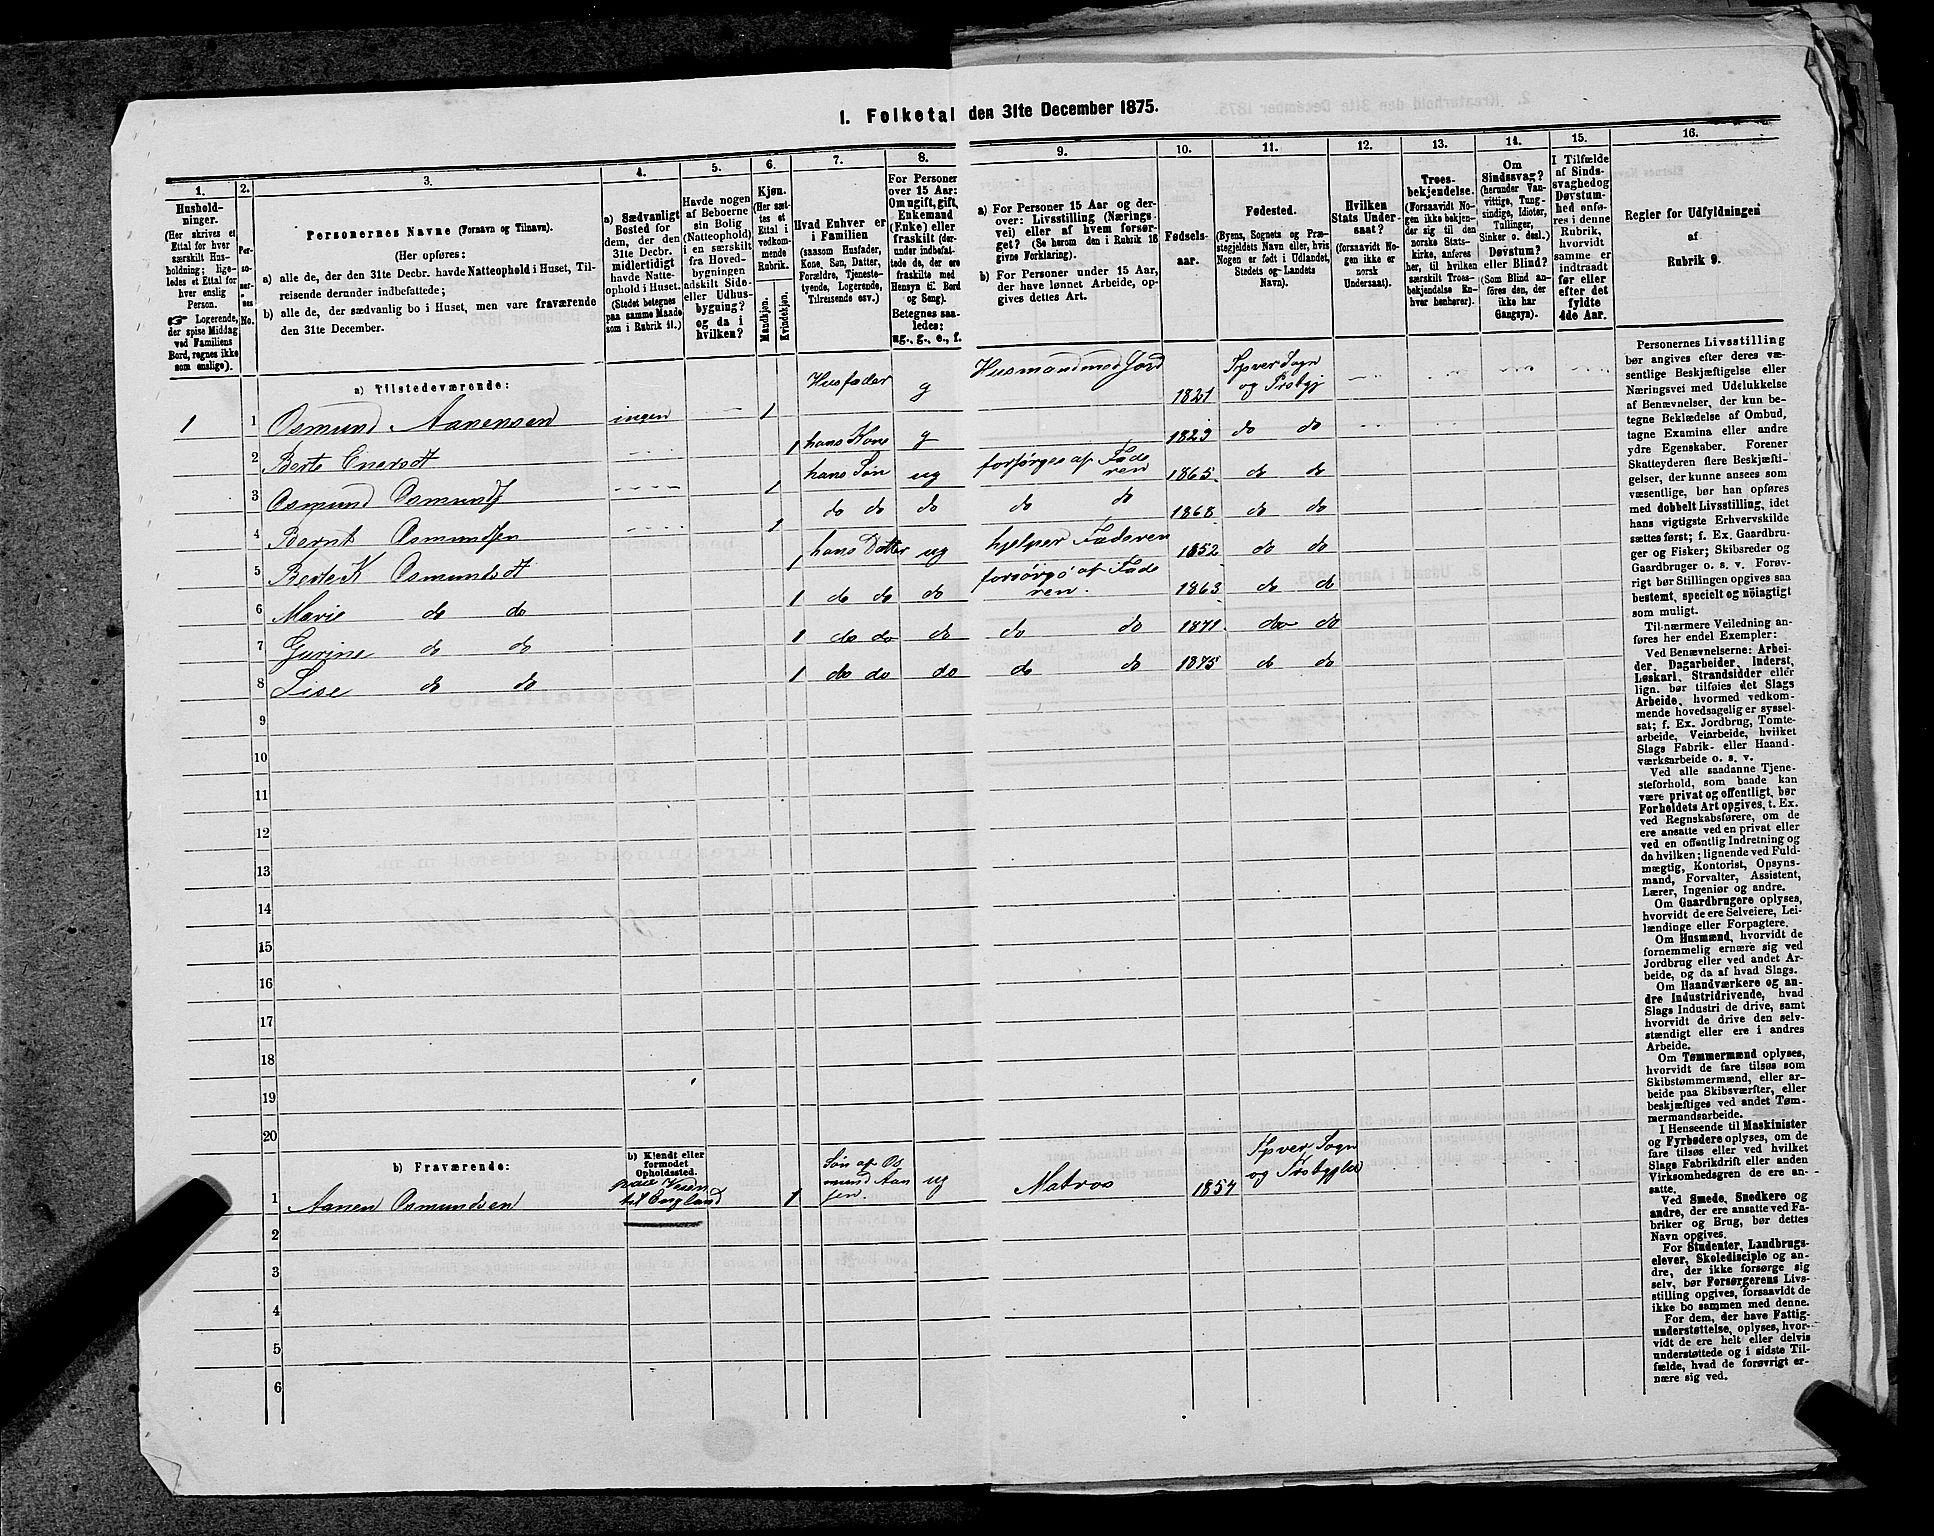 1. Folketal den 31te December 1875.
1.
Hushold-
ninger.
(Her skrives et
Ettal for hver
særskilt Hus-
holdning; lige-
ledes et Ettal for
hver enslig
Person.
☞ Logerende,
der spise Middag
ved Familiens
Bord, regnes ikke
som enslige).
2.
Per-
so-
ner-
nes
No.
3.
Personernes Navne (Fornavn og Tilnavn).
(Her opføres:
a) alle de, der den 31te Decbr. havde Natteophold i Huset, Til-
reisende derunder indbefattede;
b) alle de, der sædvanlig bo i Huset, men vare fraværende
den 31te December.
4.
a) Sædvanligt
Bosted for
dem, der den
31te Decbr.
midlertidigt
havde Natte-
ophold i Huset.
(Stedet betegnes
paa samme Maade
som i Rubrik 11.)
5.
Havde nogen
af Beboerne
sin Bolig
(Natteophold)
i en særskilt
fra Hoved-
bygningen
adskilt Side-
eller Udhus-
bygning?
og da i
hvilken?
6.
Kjøn.
(Her sæt-
tes et
Ettal i
vedkom-
mende
Rubrik.
Mandkjøn.
Kvindekjøn.
7.
Hvad Enhver er
i Familien
(saasom Husfader,
Kone, Søn, Datter,
Forældre, Tjeneste-
tyende, Logerende,
Tilreisende osv.)
8.
For Personer
over 15 Aar:
Om ugift, gift,
Enkemand
(Enke) eller
fraskilt (der-
under indbefat-
tede de, der ere
fraskilte med
Hensyn til Bord
og Seng).
Betegnes saa-
ledes:
ug., g., e., f.
9.
a) For Personer 15 Aar og der-
over: Livsstilling (Nærings-
vei) eller af hvem forsør-
get? (Se herom den i Rubrik 16
givne Forklaring).
b) For Personer under 15 Aar,
der have lønnet Arbeide, op-
gives dettes Art.
10.
Fødsels-
aar.
11.
Fødested.
(Byens, Sognets og Præ-
stegjeldets Navn eller, hvis
Nogen er født i Udlandet,
Stedets og Landets
Navn).
12.
Hvilken
Stats Under-
saat?
(forsaavidt No-
gen ikke er
norsk
Undersaat).
13.
Troes-
bekjendelse.
(Forsaavidt No-
gen ikke bekjen-
der sig til den
norske Stats-
kirke, anføres
her, til hvilken
særskilt Troes-
bekjendelse En-
hver henhører).
14.
Om
Sindssvag?
(herunder Van-
vittige, Tung-
sindige, Idioter,
Tullinger,
Sinker o. desl.)
Døvstum?
eller Blind?
(Som Blind an-
føres den, der
ikke har
Gangsyn).
15.
I Tilfælde
af Sinds-
svaghed og
Døvstum-
hed anfø-
res i denne
Rubrik,
hvorvidt
samme er
indtraadt
før eller
efter det
fyldte
4de Aar.
16.
Regler for Udfyldningen
af
Rubrik 9.
a) Tilstedeværende:
1 1 Osmund Aanensen ingen 1 Husfader g Husmand med Jord 1821 Tpver Sogn og Prstgj
2 Berte Enersdt 1 hans Kone g 1823 do do
3 Osmund Osmunds 1 hans Søn ug forsørges af Faderen 1865 do do
4 Bernt Osmundsen 1 do do do do do 1868 do do
5 Berte K Osmundsdt 1 hans Datter ug hjelper Faderen 1852 do do
6 Marie do do 1 do do do forsørgs af Faderen. 1863 do do
7 Gurine do do 1 do do do do do 1871 do do
8 Lise do do 1 do do do do do 1875 do do
9
10
11
12
13
14
15
16
17
18
19
20
b) Fraværende:
b) Kjendt eller
formodet
Opholdssted.
1 Aanen Osmundsen paa Reisen til England 1 Søn af Osmund Aansen. ug Matros 1854 Tpver Sogn og Prstgjld
2
3
4
5
6
Personernes Livsstilling
bør angives efter deres væ-
sentlige Beskjæftigelse eller
Næringsvei med Udelukkelse
af Benævnelser, der kun be-
tegne Beklædelse af Ombud,
tagne Examina eller andre
ydre Egenskaber. Forener
Skatteyderen flere Beskjæfti-
gelser, der kunne ansees som
væsentlige, bør han opføres
med dobbelt Livsstilling, idet
hans vigtigste Erhvervskilde
sættes først; f. Ex. Gaardbru-
ger og Fisker; Skibsreder og
Gaardbruger o. s. v. Forøv-
rigt bør Stillingen opgives saa
bestemt, specielt og nöiagtigt
som muligt.
Til nærmere Veiledning an-
føres her endel Exempler:
Ved Benævnelserne: Arbei-
der, Dagarbeider, Inderst,
Løskarl, Strandsidder eller
lign. bør tilføies det Slags
Arbeide, hvormed vedkom-
mende hovedsagelig er syssel-
sat; f. Ex. Jordbrug, Tomte-
arbeide, Veiarbeide, hvilket
Slags Fabrik- eller Haand-
værksarbeide o. s. v.
Ved alle saadanne Tjene-
steforhold, som baade kan
være privat og offentligt, bør
Forholdets Art opgives, t. Ex.
ved Regnskabsførere, om de
ere ansatte ved en privat eller
ved en offentlig Indretning og
da hvilken; lignende ved Fuld-
mægtig, Kontorist, Opsyns-
mand, Forvalter, Assistent,
Lærer, Ingeniør og andre.
Om Gaardbrugere oplyses,
hvorvidt de ere Selveiere, Lei-
lændinge eller Forpagtere.
Om Husmænd, hvorvidt de
fornemmelig ernære sig ved
Jordbrug eller ved andet Ar-
beide, og da af hvad Slags.
Om Haandværkere og an-
dre Industridrivende, hvad
Slags Industri de drive, samt
hvorvidt de drive den selv-
stændigt eller ere i andres
Arbeide.
Om Tømmermænd oplyses,
hvorvidt de fare tilsøs som
Skibstømmermænd, eller ar-
beide paa Skibsværfter, eller
beskjæftiges ved andet Tøm-
mermandsarbeide.
I Henseende til Maskinister
og Fyrbødere oplyses, om de
fare tilsøs eller ved hvilket
Slags Fabrikdrift eller anden
Virksomhedsgren de ere an-
satte.
Ved Smede, Snedkere og
andre, der ere ansatte ved Fa-
briker og Brug, bør dettes
Navn opgives.
For Studenter, Landbrugs-
elever, Skoledisciple og an-
dre, der ikke forsørge sig
selv, bør Forsørgerens Livs-
stilling opgives, forsaavidt de
ikke bo sammen med denne.
For dem, der have Fattig-
understøttelse, oplyses, hvor-
vidt de ere helt eller delvis
understøttede og i sidste Til-
fælde, hvad de forøvrigt er-
nære sig ved.